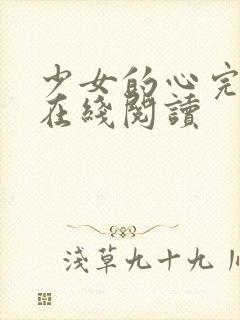 少女的心完
在綫閱讀
淺草九十九